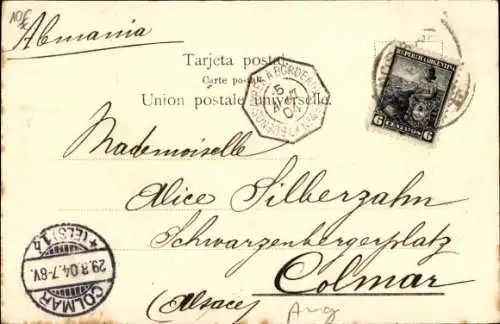 10f
Alemania
Tarjeta postal
Carte postale
Union postale universelle.
BUENOS-AYRES A BORDEAUX
5
04
REPUBLICA ARGENTINA
6 CENTAVOS 6
Mademoiselle
Alice Silberzahn
Schwarzenbergerplatz
Colmar
(Alsace)
Aug
* (ELS.) 1 d
29.8.04.7-8V.
COLMAR